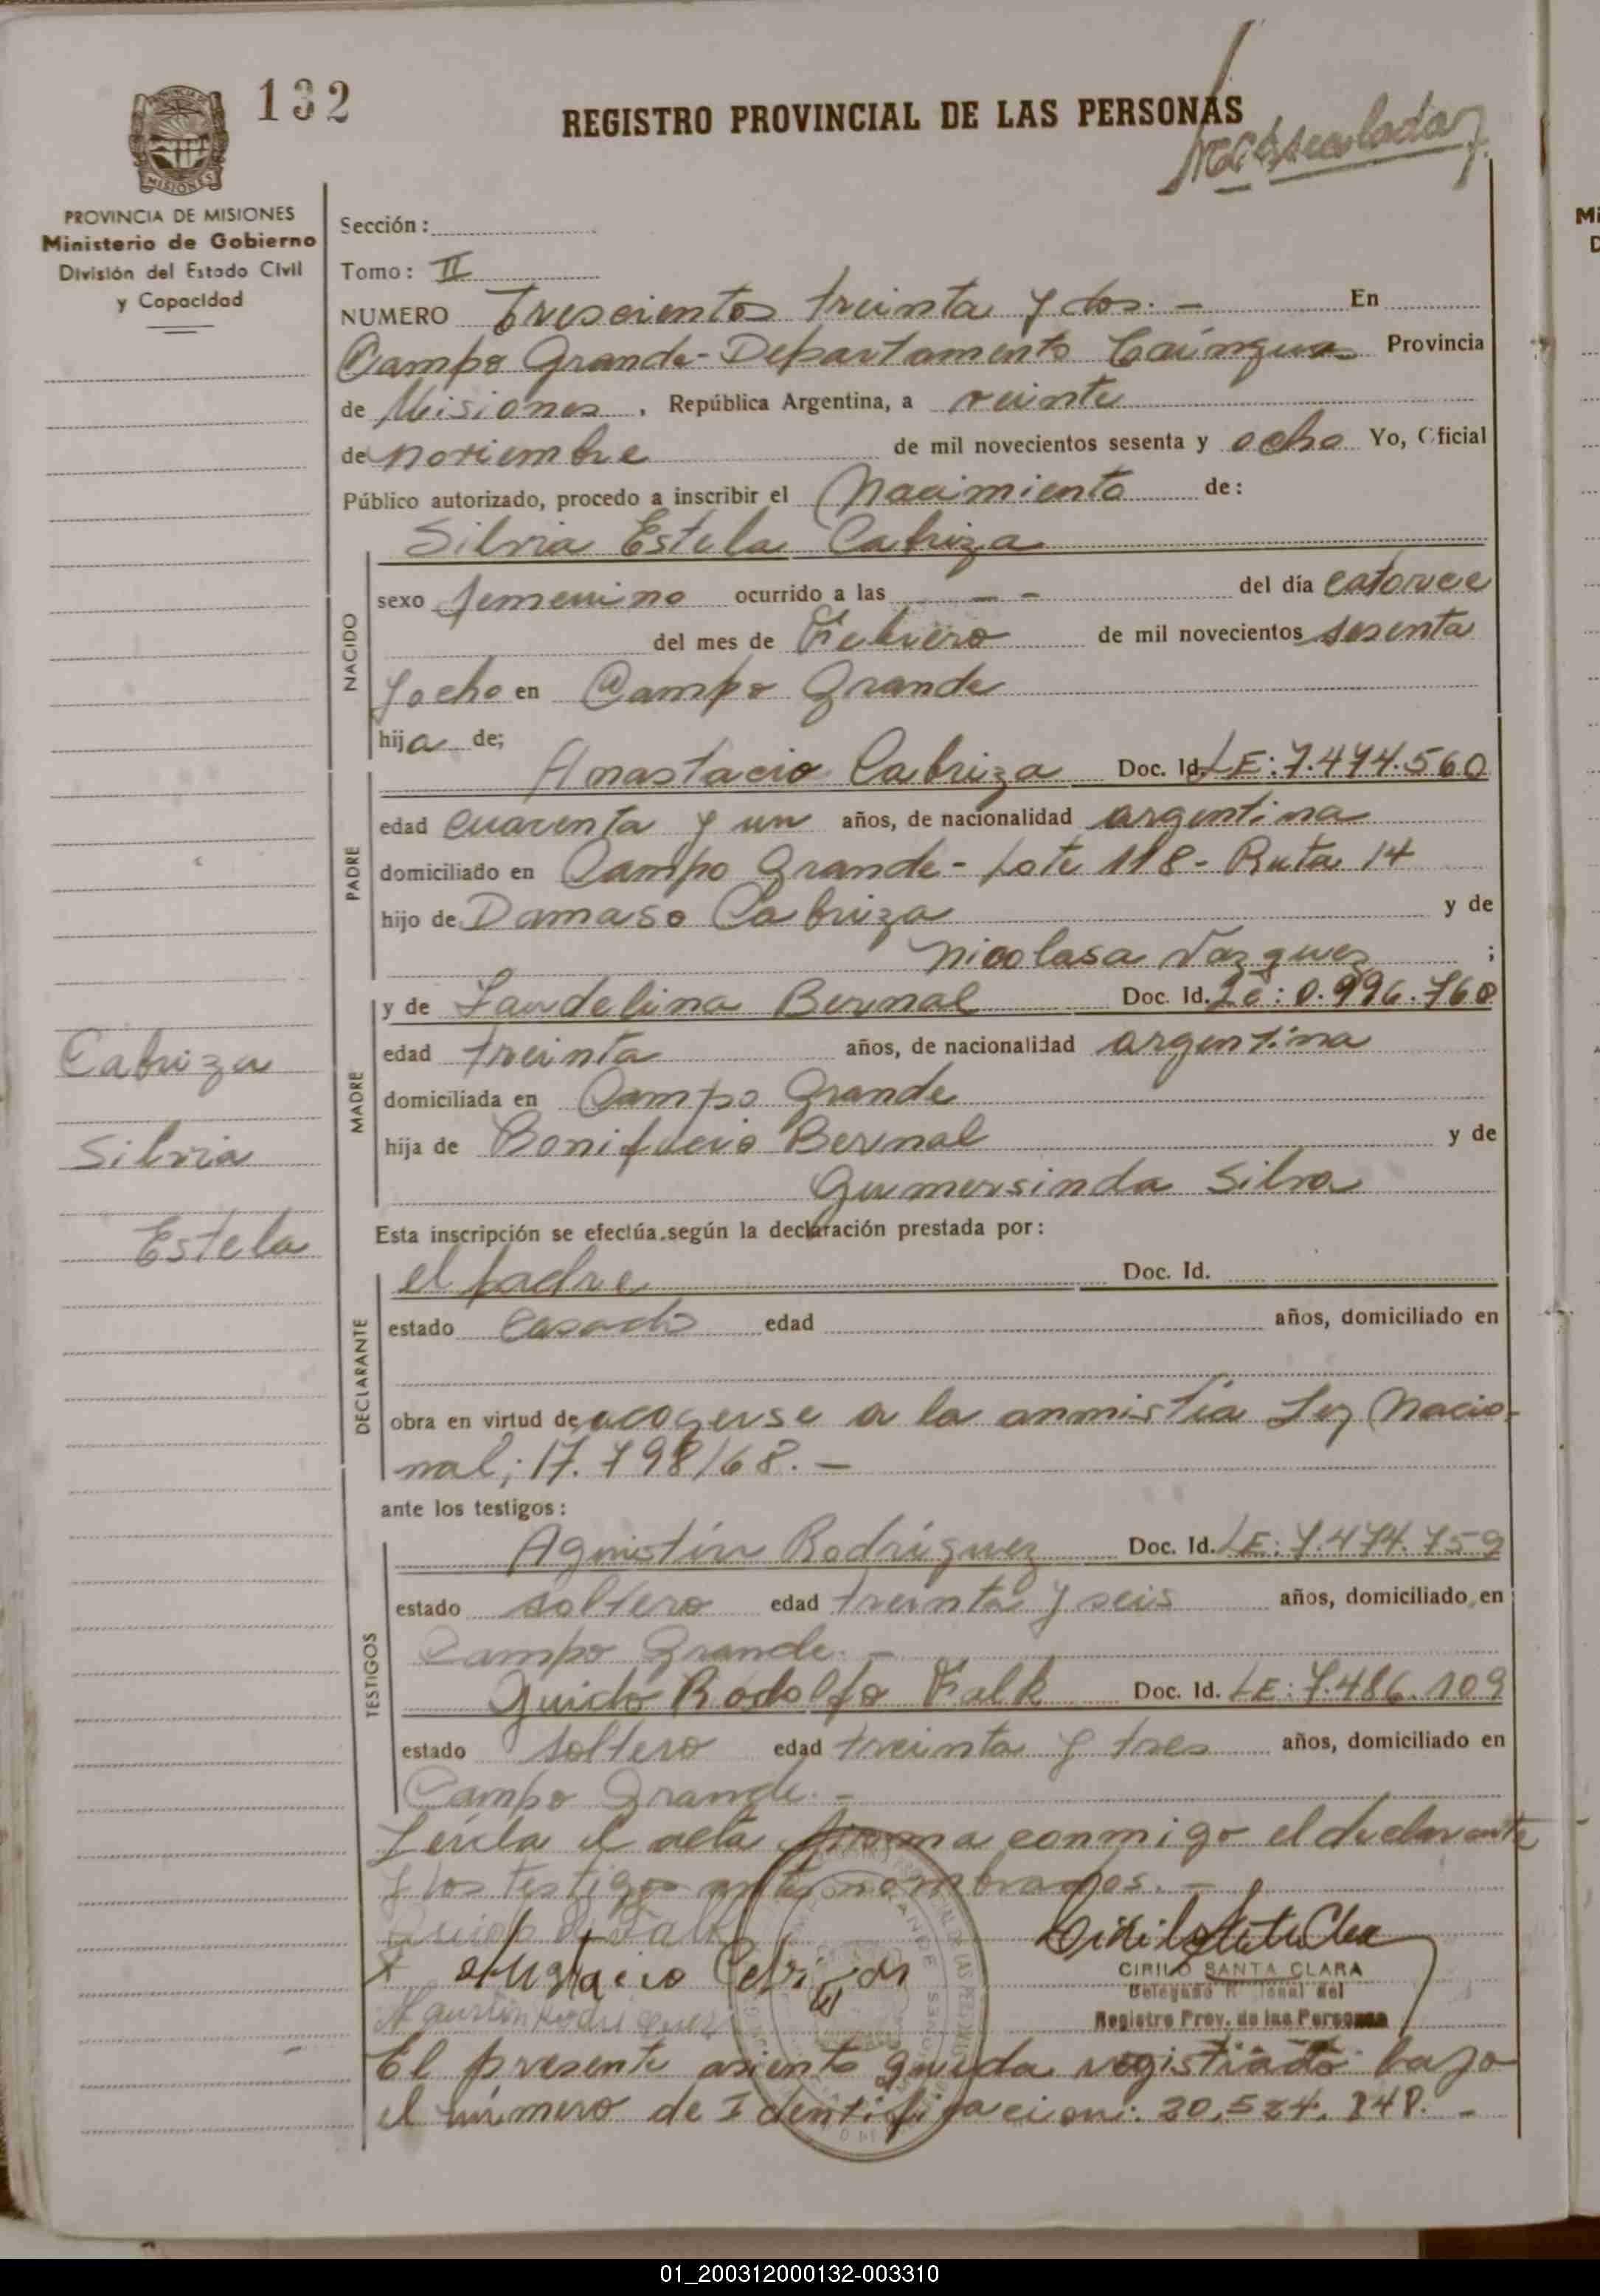 132
REGISTRO PROVINCIAL DE LAS PERSONAS
PROVINCIA DE MISIONES
Ministerio de Gobierno
División del Estado Civil
y Capacidad
Sección:
Tomo: II
NUMERO Trescientos treinta y dos.- En
Campo Grande-Departamento Caingua Provincia
de Misiones, República Argentina, a veinte
de noviembre de mil novecientos sesenta y ocho Yo, Oficial
Público autorizado, procedo a inscribir el Nacimiento de:
Silvia Estela Cabriza
NACIDO
sexo femenino ocurrido a las -- del día catorce
del mes de Febrero de mil novecientos sesenta
y ocho en Campo Grande
hija de;
PADRE
Anastacio Cabriza Doc. Id. LE: 7.474.560
edad cuarenta y un años, de nacionalidad argentina
domiciliado en Campo Grande- Lote 118- Ruta 14
hijo de Damaso Cabriza y de
Nicolasa Vazquez ;
MADRE
y de Laudelina Bernal Doc. Id. Le: 0.996.760
edad treinta años, de nacionalidad argentina
domiciliada en Campo Grande
hija de Bonifacio Bernal y de
Gumersinda Silva
Cabriza
Silvia
Estela
Esta inscripción se efectúa según la declaración prestada por:
DECLARANTE
el padre Doc. Id.
estado Casado edad años, domiciliado en
obra en virtud de acogerse a la anmistía Ley Nacio-
nal; 17.798/68.-
ante los testigos:
TESTIGOS
Agustín Rodríguez Doc. Id. LE: 7.474.759
estado soltero edad treinta y seis años, domiciliado en
Campo Grande.-
Guido Rodolfo Falk Doc. Id. LE: 7.486.109
estado soltero edad treinta y tres años, domiciliado en
Campo Grande.-
Leída el acta firma conmigo el declarante
y los testigos antes nombrados.-
CIRILO SANTA CLARA
Registro Prov. de las Personas
El presente asiento queda registrado bajo
el número de Identificacion: 20.524.
01_200312000132-003310